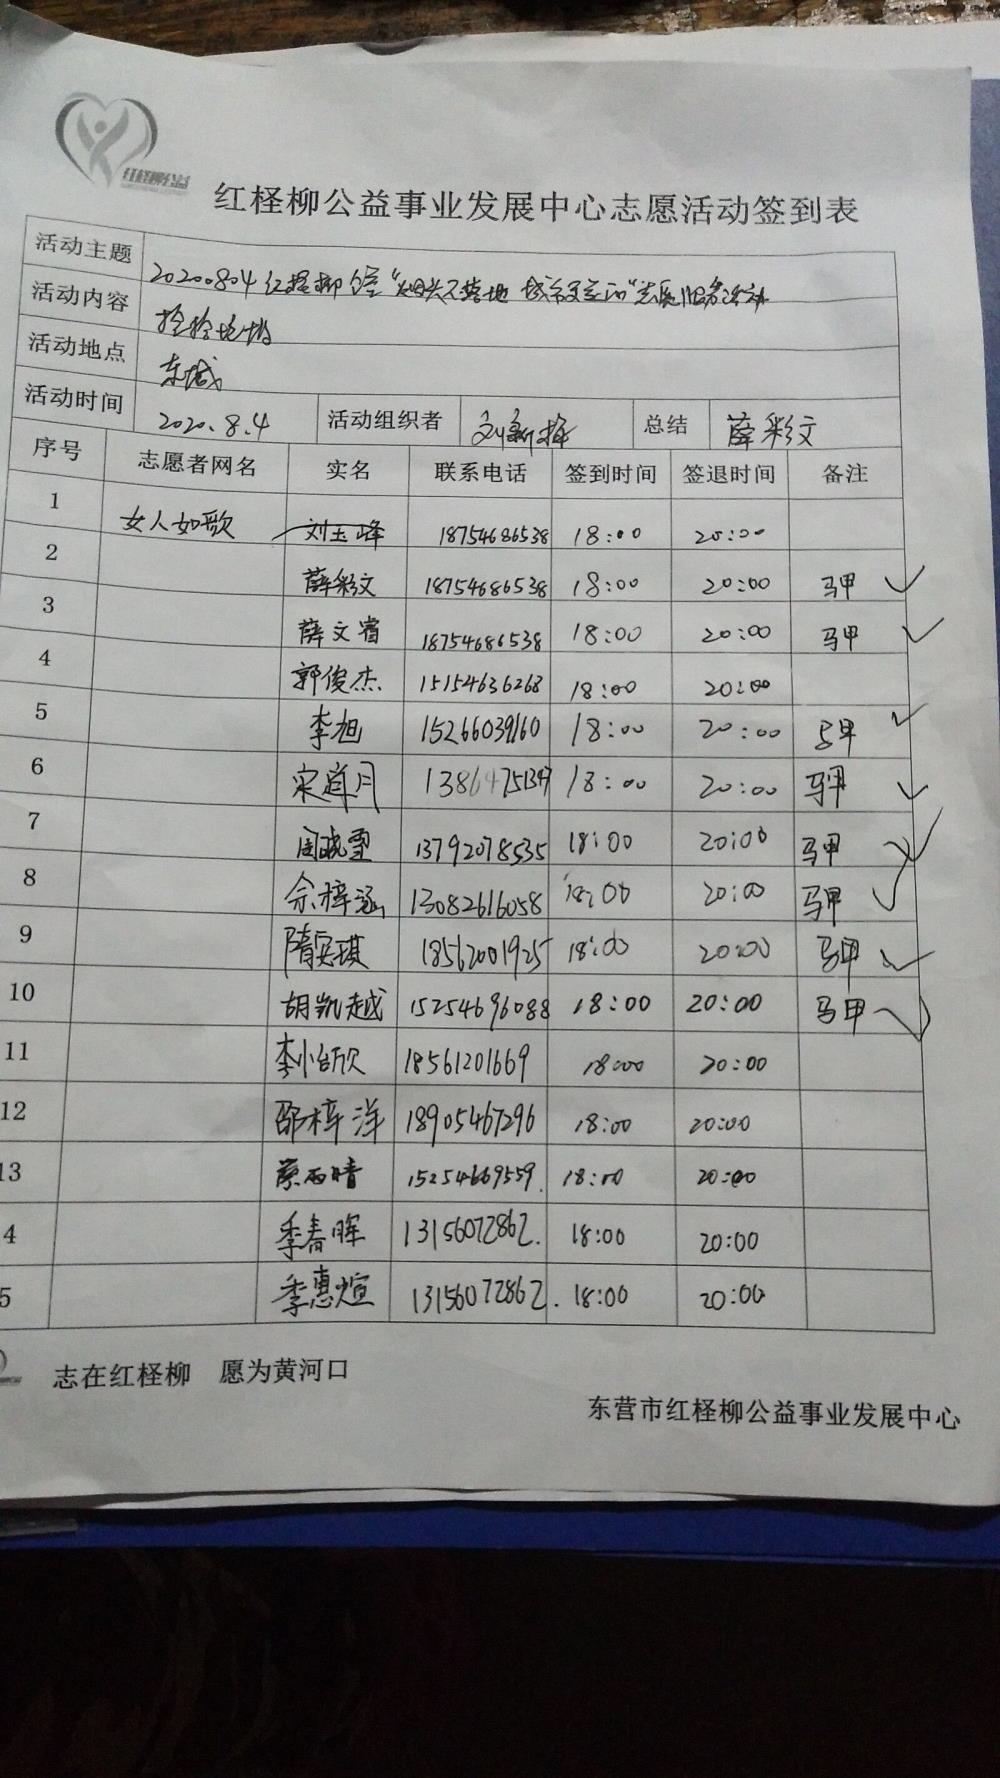 红柽柳公益
红柽柳公益事业发展中心志愿活动签到表
活动主题 20200804红柽柳公益“烟头不落地 城市更美丽”志愿服务活动
活动内容 捡拾垃圾
活动地点 东城
活动时间 2020.8.4 活动组织者 刘新 总结 薛彩文
序号 志愿者网名 实名 联系电话 签到时间 签退时间 备注
1 女人如歌 刘玉峰 18754686538 18:00 20:00
2 薛彩文 18754686538 18:00 20:00 马甲 ✓
3 薛文睿 18754686538 18:00 20:00 马甲 ✓
4 郭俊杰 15154636268 18:00 20:00
5 李旭 15266039160 18:00 20:00 马甲 ✓
6 宋道月 13864751347 18:00 20:00 马甲 ✓
7 闫晓雪 13792078535 18:00 20:00 马甲 ✓
8 佘梓涵 13082616058 18:00 20:00 马甲 ✓
9 隋安琪 18562001925 18:00 20:00 马甲 ✓
10 胡凯越 15254696088 18:00 20:00 马甲 ✓
11 李小欣 18561201669 18:00 20:00
12 邵梓洋 18905467296 18:00 20:00
13 蔡雨晴 15254669559. 18:00 20:00
4 季春晖 13156072862. 18:00 20:00
5 季惠煊 13156072862. 18:00 20:00
志在红柽柳 愿为黄河口
东营市红柽柳公益事业发展中心